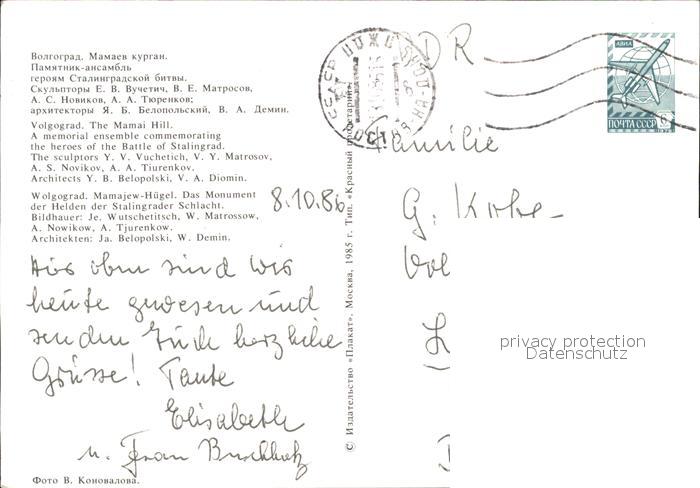 Волгоград. Мамаев курган.
Памятник-ансамбль
героям Сталинградской битвы.
Скульпторы Е. В. Вучетич, В. Е. Матросов,
А. С. Новиков, А. А. Тюренков;
архитекторы Я. Б. Белопольский, В. А. Демин.
Volgograd. The Mamai Hill.
A memorial ensemble commemorating
the heroes of the Battle of Stalingrad.
The sculptors Y. V. Vuchetich, V. Y. Matrosov,
A. S. Novikov, A. A. Tiurenkov.
Architects Y. B. Belopolski, V. A. Diomin.
Wolgograd. Mamajew-Hügel. Das Monument
der Helden der Stalingrader Schlacht.
Bildhauer: Je. Wutschetitsch, W. Matrossow,
A. Nowikow, A. Tjurenkow.
Architekten: Ja. Belopolski, W. Demin.
8.10.86
Hier oben sind wir
heute gewesen und
senden Euch herzliche
Grüsse! Tante
Elisabeth
u. Frau Buchholz
Фото В. Коновалова.
© Издательство «Плакат», Москва, 1985 г. Тип. «Красный пролетарий»
DDR
АВИА
ПОЧТА СССР
6
1978
Familie
G. Kobe-
privacy protection
Datenschutz